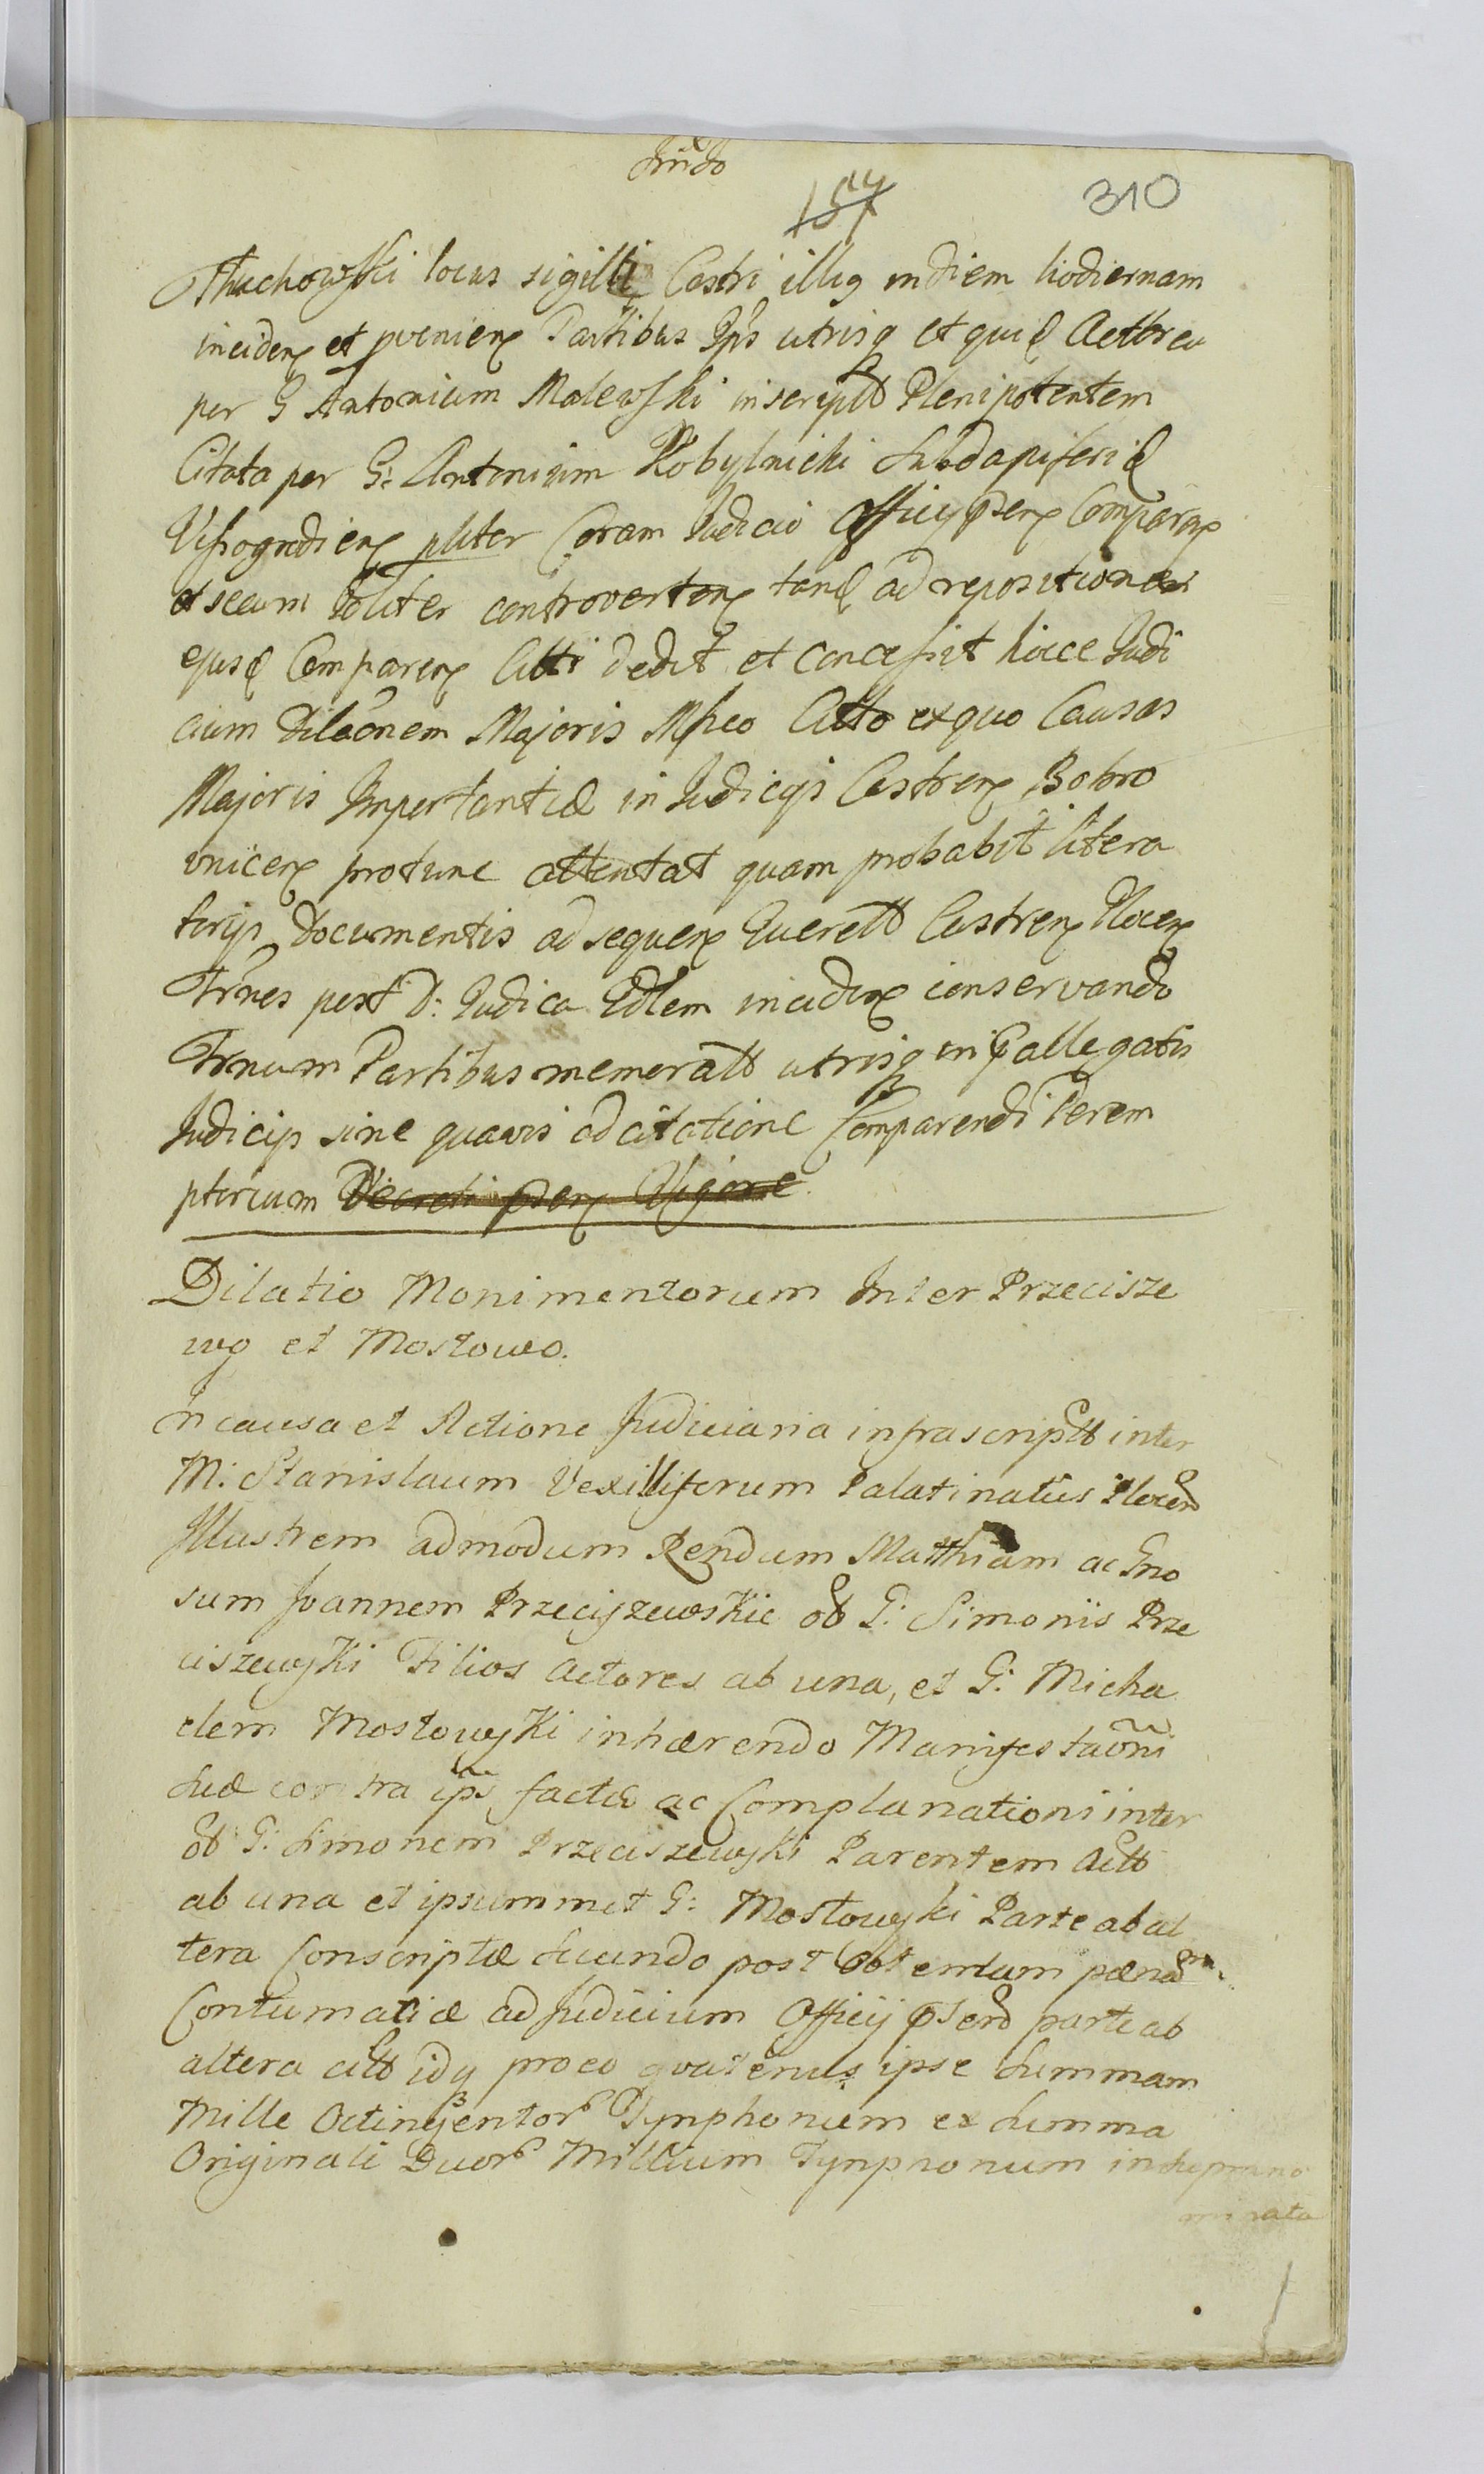 157
310
Tłuchowski locus sigilli Castri illig in diem hodiernam
inciden et pvenien Partibus Ips utrisq et quid Actorea
per G Antonium Malewski inscriptt Plenipotentem
Citata per G: Antonium Kobylnicki Subdapiferid
Vissogradien pliter Coram Judicio Officy psen Comparen
et secum soliter controverten tand ad repositionem
ejusd Comparen Citti dedit et concessit hocce Judi
cium Dilaonem Majoris Mfico Citto ex quo Causas
Majoris Importantiæ in Judicijs Castren Bobro
vnicen protunc attentat quam probabit litera
torijs Documentis ad sequen Querell Castren Plocen
Trnos post D: Judica Edlem inciden conservando
Trnum Partibus memoratt utrisq in pallegatis
Judicijs sine quavis adcitatione Comparendi Perem
ptorium Decreti psen Vigore
Dilatio Monimentorum Inter Przecisze
wg et Mostowo.
In causa et Actione Judiciaria infrascriptt inter
M: Stanislaum Vexilliferum Palatinatus Plocen
Illustrem admodum Rendum Matthiam ac Gno
sum Joannem Przeciszewskie ob G: Simonis Prze
ciszewski Filios Actores ab una, et G: Micha
elem Mostowski inhærendo Manifestaoni
suæ contra ips factæ ac Complanationi inter
ob G: Simonem Przeciszewski Parentem Actt
ab una et ipsummet G: Mostowski Parte ab al
tera Conscriptæ secundo post obtentam pænam
Contumaciæ ad Judicium Officij psen parte ab
altera citt idq pro eo quatenus ipse summam
Mille Octingentor Tynphonum ex summa
Originali Duor Millium Tynphonum